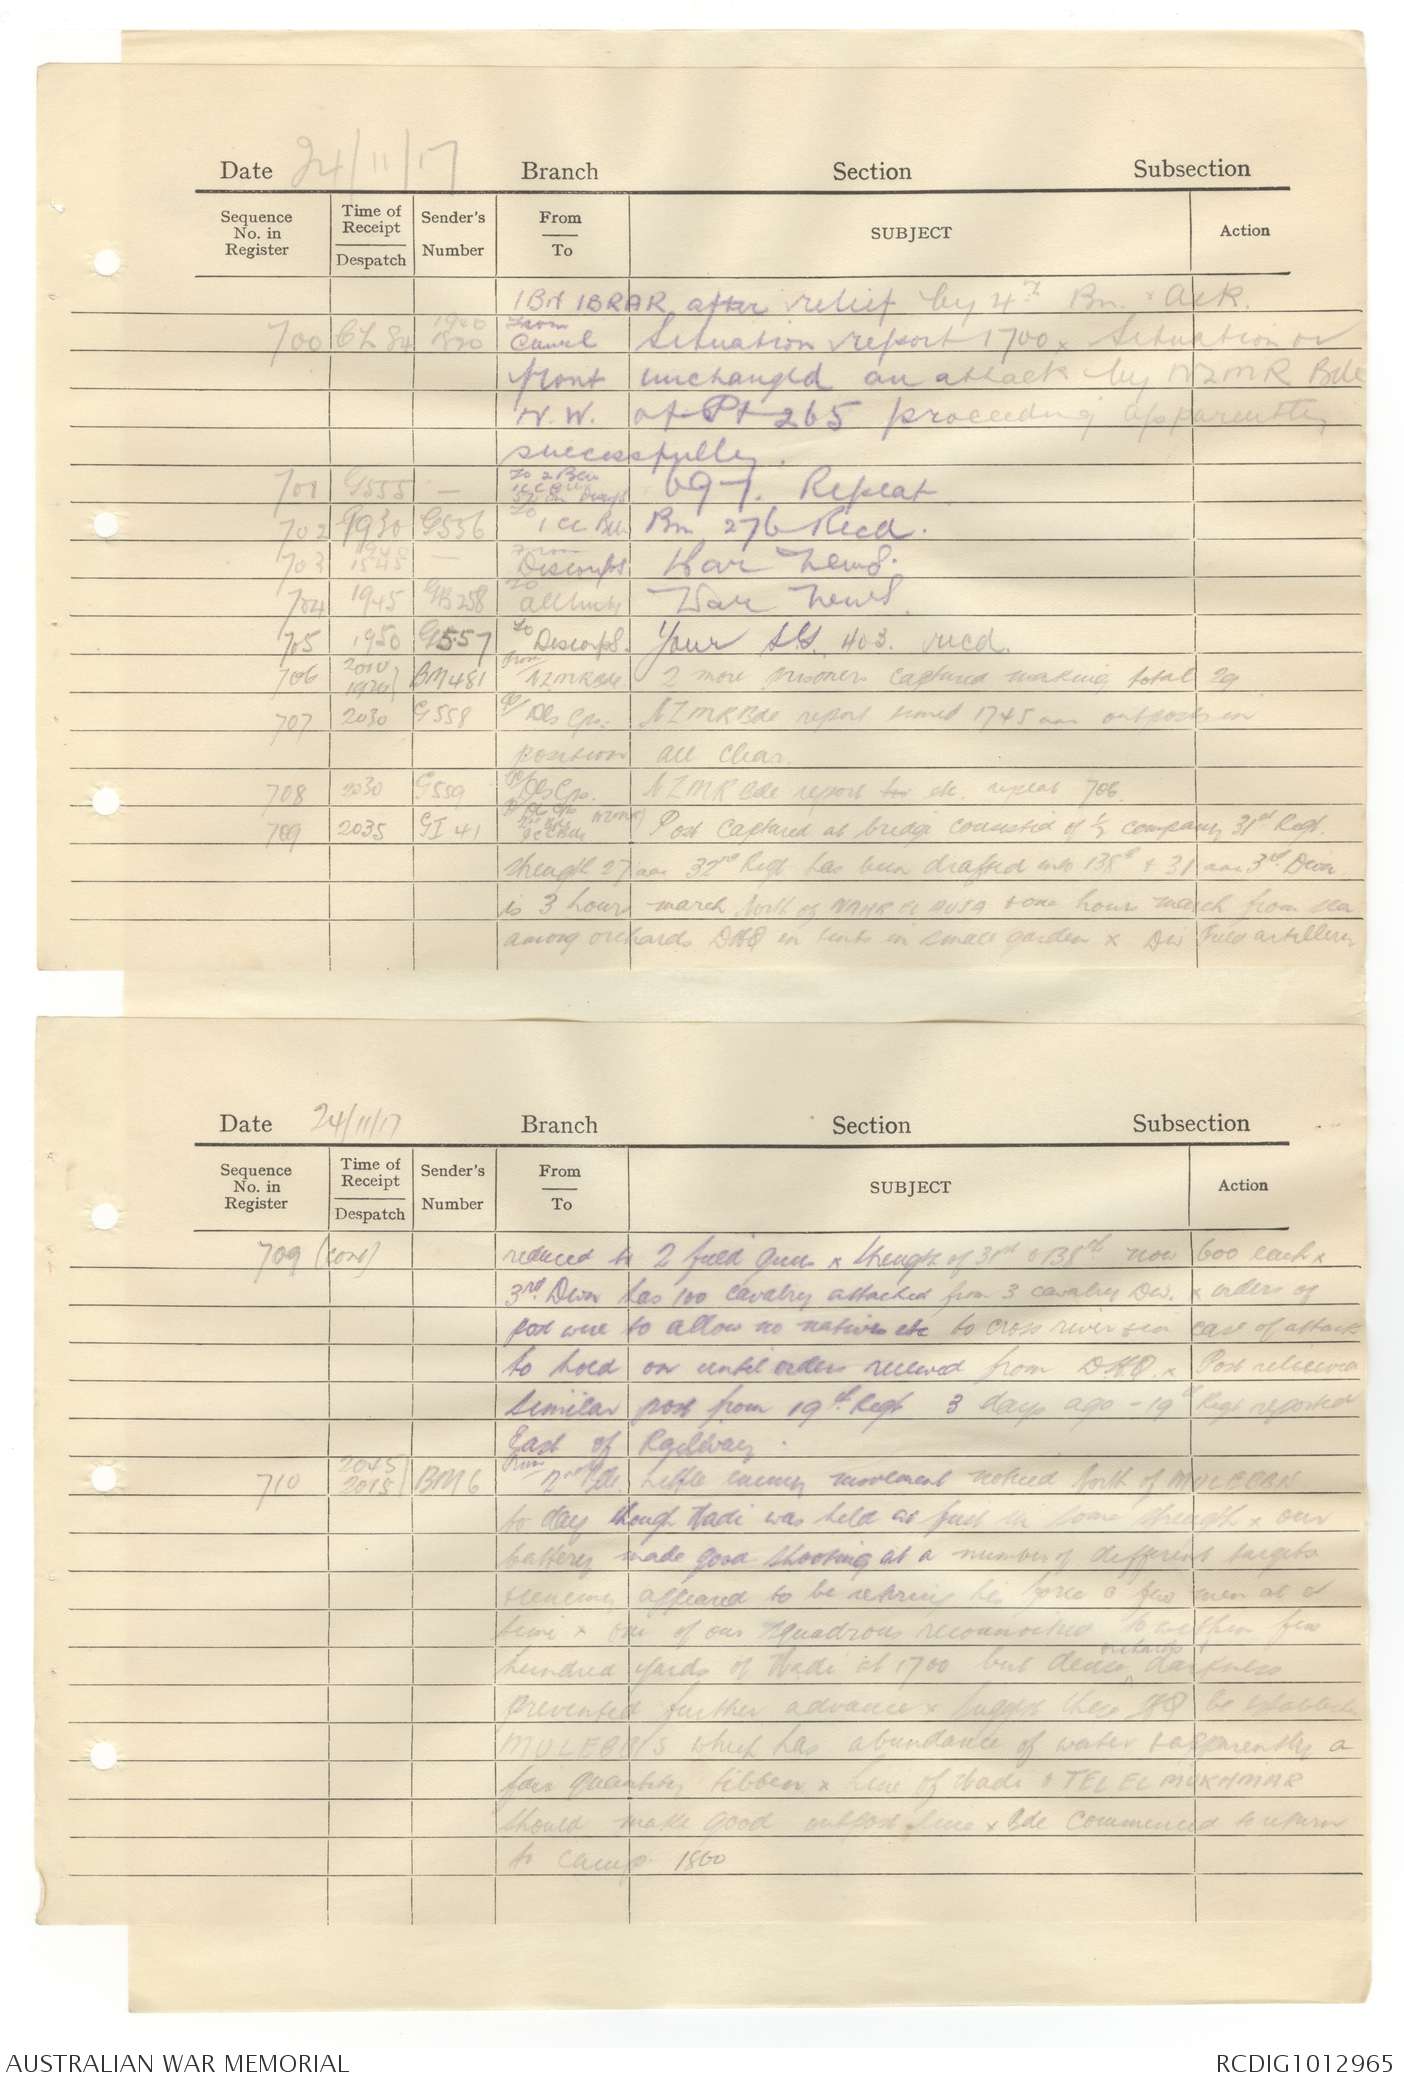 Date 24/11/17 Branch Section Subsection
Sequence No. in Register
Time of Receipt
Despatch
Sender's Number
From
To
SUBJECT
Action
after relief by 4th Bn. Ack.
700 Situation report 1700 x Situation on
front unchanged an attack by NZMR Bde
N.W. of Pt 265 proceeding apparently
successfully.
701 G555 — 697. Repeat
702 1930 G556 To Bm 276 Recd.
703 1545 — From Descorps War News.
704 1945 To all units War News
705 1950 G557 To Descorps. Your 403. recd.
706 2010 1920 BM481 From NZMRBde 2 more prisoners captured making total 29
707 2030 G558 NZMRBde report timed 1745 aaa outposts in
position all clear.
708 2030 G559 NZMR Bde report etc. repeat 706.
709 2035 GI 41 Post captured at bridge consisted of ½ company 31st Regt.
strength 27 aaa 32nd Regt has been drafted into 138th + 31 aaa 3rd Divn
is 3 hours march North of NAHR EL AUJA + one hours march from sea
among orchards DHQ in tents in small garden x Div Field artillery
Date 24/11/17 Branch Section Subsection
Sequence No. in Register
Time of Receipt
Despatch
Sender's Number
From
To
SUBJECT
Action
709 (cont) reduced to 2 field guns x strength of 31st & 138th now 600 each x
3rd Divn has 100 cavalry attached from 3 cavalry Div. x orders of
post were to allow no natives etc to cross river & in case of attack
to hold on until orders received from DHQ. x Post relieved
similar post from 19th Regt 3 days ago - 19th Regt reported
East of Railway.
710 2045 2015 BM6 From 2nd Bde. Little enemy movement noticed North of MULEBBIS
to day though Wadi was held at first in some strength x our
battery made good shooting at a number of different targets
& enemy appeared to be retiring his force a few men at a
time x one of our squadrons reconnoitred to within few
hundred yards of Wadi at 1700 but dense orchards darkness
prevented further advance x Suggest these HQ be established
MULEBBIS which has abundance of water & apparently a
fair quantity tibben x Line of Wadi & TEL EL MUKHMAR
should make good outpost line x Bde commenced to return
to camp. 1800
AUSTRALIAN WAR MEMORIAL
RCDIG1012965